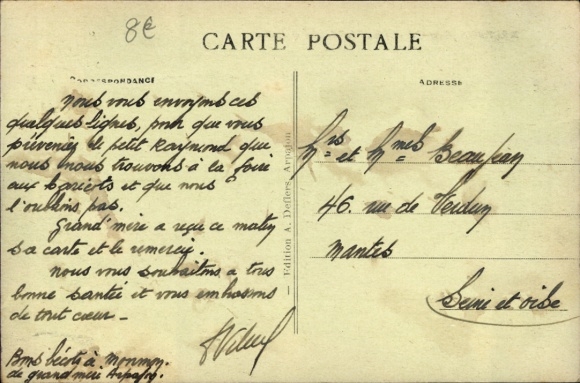 8€
CARTE POSTALE
CORRESPONDANCE
ADRESSE
Nous vous envoyons ces
quelques lignes, pour que vous
préveniez le petit Raymond que
nous nous trouvons à la foire
aux haricots et que nous
l'oublions pas.
Grand'mère a reçu ce matin
sa carte et le remercie.
Nous vous souhaitons a tous
bonne santée et vous embrassons
de tout cœur -
Bons bécots à Monmon.
de grand'mère Arpajon.
Edition A. Defiers, Arpajon
Mrs et Mmes Beaujean
46. rue de Verdun
Mantes
Seine et oise